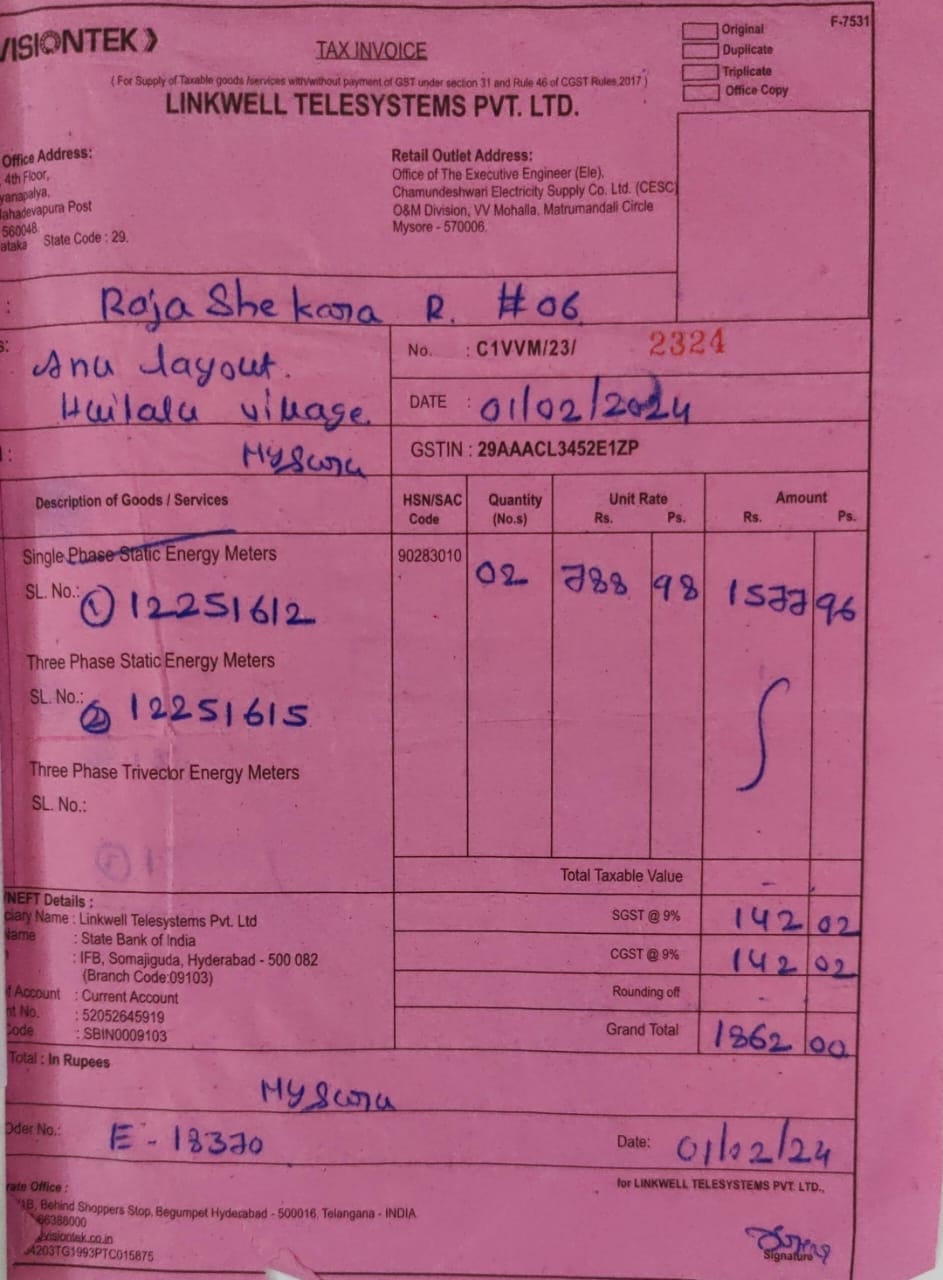 VISIONTEK
TAX INVOICE
Original
Duplicate
Triplicate
Office Copy
F-7531
( For Supply of Taxable goods /services with/without payment of GST under section 31 and Rule 46 of CGST Rules,2017 )
LINKWELL TELESYSTEMS PVT. LTD.
Office Address:
4th Floor,
yanapalya,
ahadevapura Post
560048
ataka State Code : 29.
Retail Outlet Address:
Office of The Executive Engineer (Ele),
Chamundeshwari Electricity Supply Co. Ltd. (CESC)
O&M Division, VV Mohalla, Matrumandali Circle
Mysore - 570006.
: Raja Shekara R. #06
s: Anu layout.
Huilalu village
: Mysuru
No. : C1VVM/23/ 2324
DATE : 01/02/2024
GSTIN : 29AAACL3452E1ZP
Description of Goods / Services HSN/SAC Code Quantity (No.s) Unit Rate Rs. Ps. Amount Rs. Ps.
Single Phase Static Energy Meters 90283010 02 788 98 1577 96
SL. No.: ① 12251612
Three Phase Static Energy Meters
SL. No.: ② 12251615
Three Phase Trivector Energy Meters
SL. No.:
Total Taxable Value -
SGST @ 9% 142 02
CGST @ 9% 142 02
Rounding off -
Grand Total 1862 00
/NEFT Details :
ciary Name : Linkwell Telesystems Pvt. Ltd
Name : State Bank of India
: IFB, Somajiguda, Hyderabad - 500 082
(Branch Code:09103)
f Account : Current Account
nt No. : 52052645919
Code : SBIN0009103
Total : In Rupees
Mysuru
Oder No.: E - 18370 Date: 01/02/24
rate Office :
Behind Shoppers Stop, Begumpet Hyderabad - 500016. Telangana - INDIA
66388000
visiontek.co.in
4203TG1993PTC015875
for LINKWELL TELESYSTEMS PVT. LTD.,
Signature